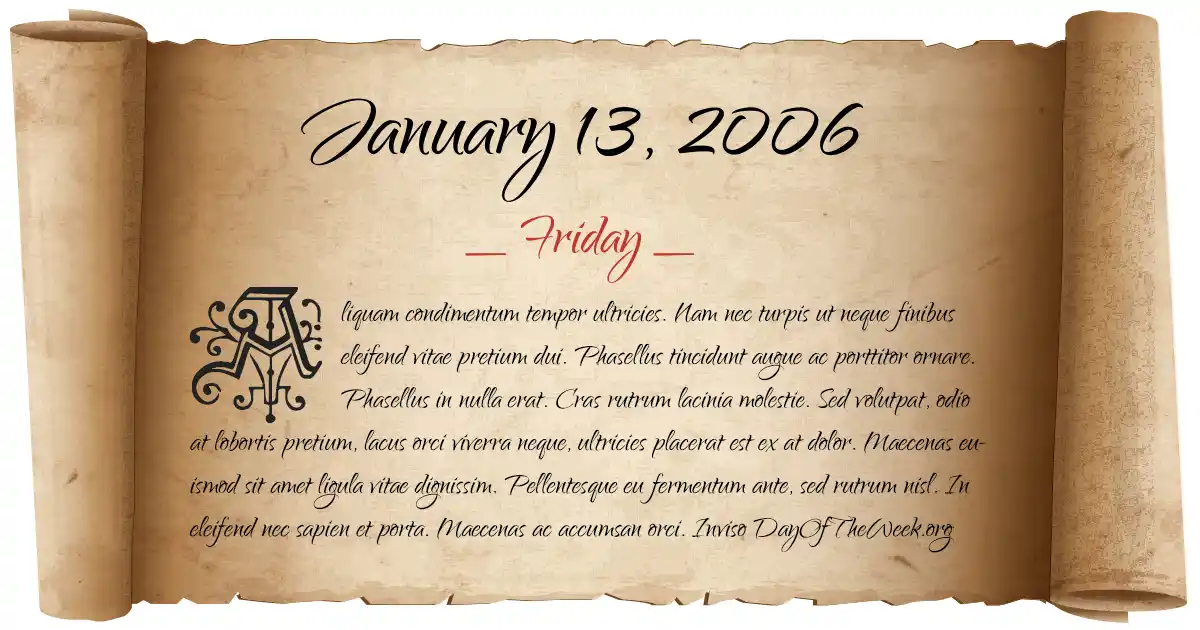 January 13, 2006
_ Friday _
Aliquam condimentum tempor ultricies. Nam nec turpis ut neque finibus
eleifend vitae pretium dui. Phasellus tincidunt augue ac porttitor ornare.
Phasellus in nulla erat. Cras rutrum lacinia molestie. Sed volutpat, odio
at lobortis pretium, lacus orci viverra neque, ultricies placerat est ex at dolor. Maecenas eu-
ismod sit amet ligula vitae dignissim. Pellentesque eu fermentum ante, sed rutrum nisl. In
eleifend nec sapien et porta. Maecenas ac accumsan orci. Inviso DayOfTheWeek.org